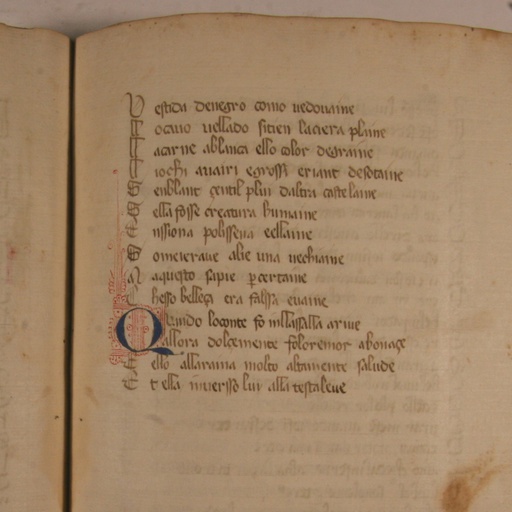 Vestida denegro como uedouaine
Locauo uellado si tien laciera plaine
Lacarne ablanca ello color degraine
Liochi auairi egrossi eriant desotaine
Senblant gentil plui daltra castelaine
Sella fosse creatura humaine
Enssiona polissena eellaine
Someieraue alie una uechiaine
Ma aquesto sapie percertaine
Chesso belleça era falssa euaine
Quando loconte fo inllassalla ariue
Eallora dolçemente
Ello allaraina molto altamente salude
Et ella inuersso lui alla testa leue